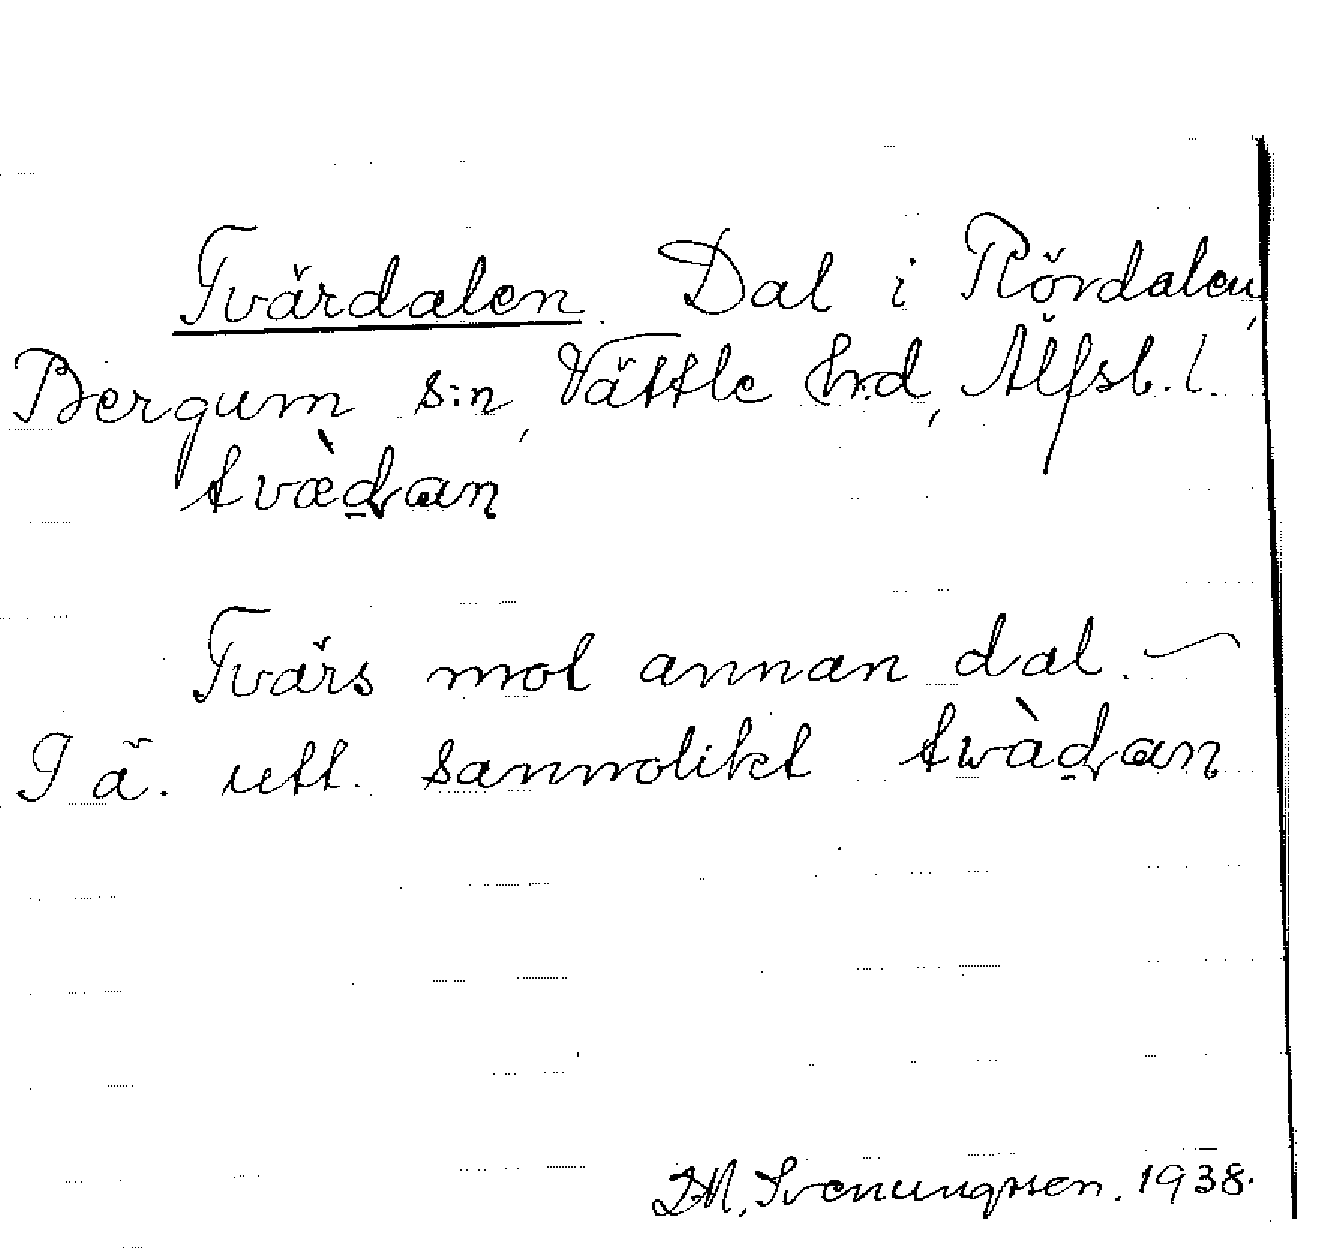 Tvärdalen. Dal i Rördalen,
Bergum s:n, Vättle hrd, Älfsb. l.
tvæ̀dan
Tvärs mot annan dal. —
I ä. utt. sannolikt twàdan
I.M. Svenungssen. 1938.